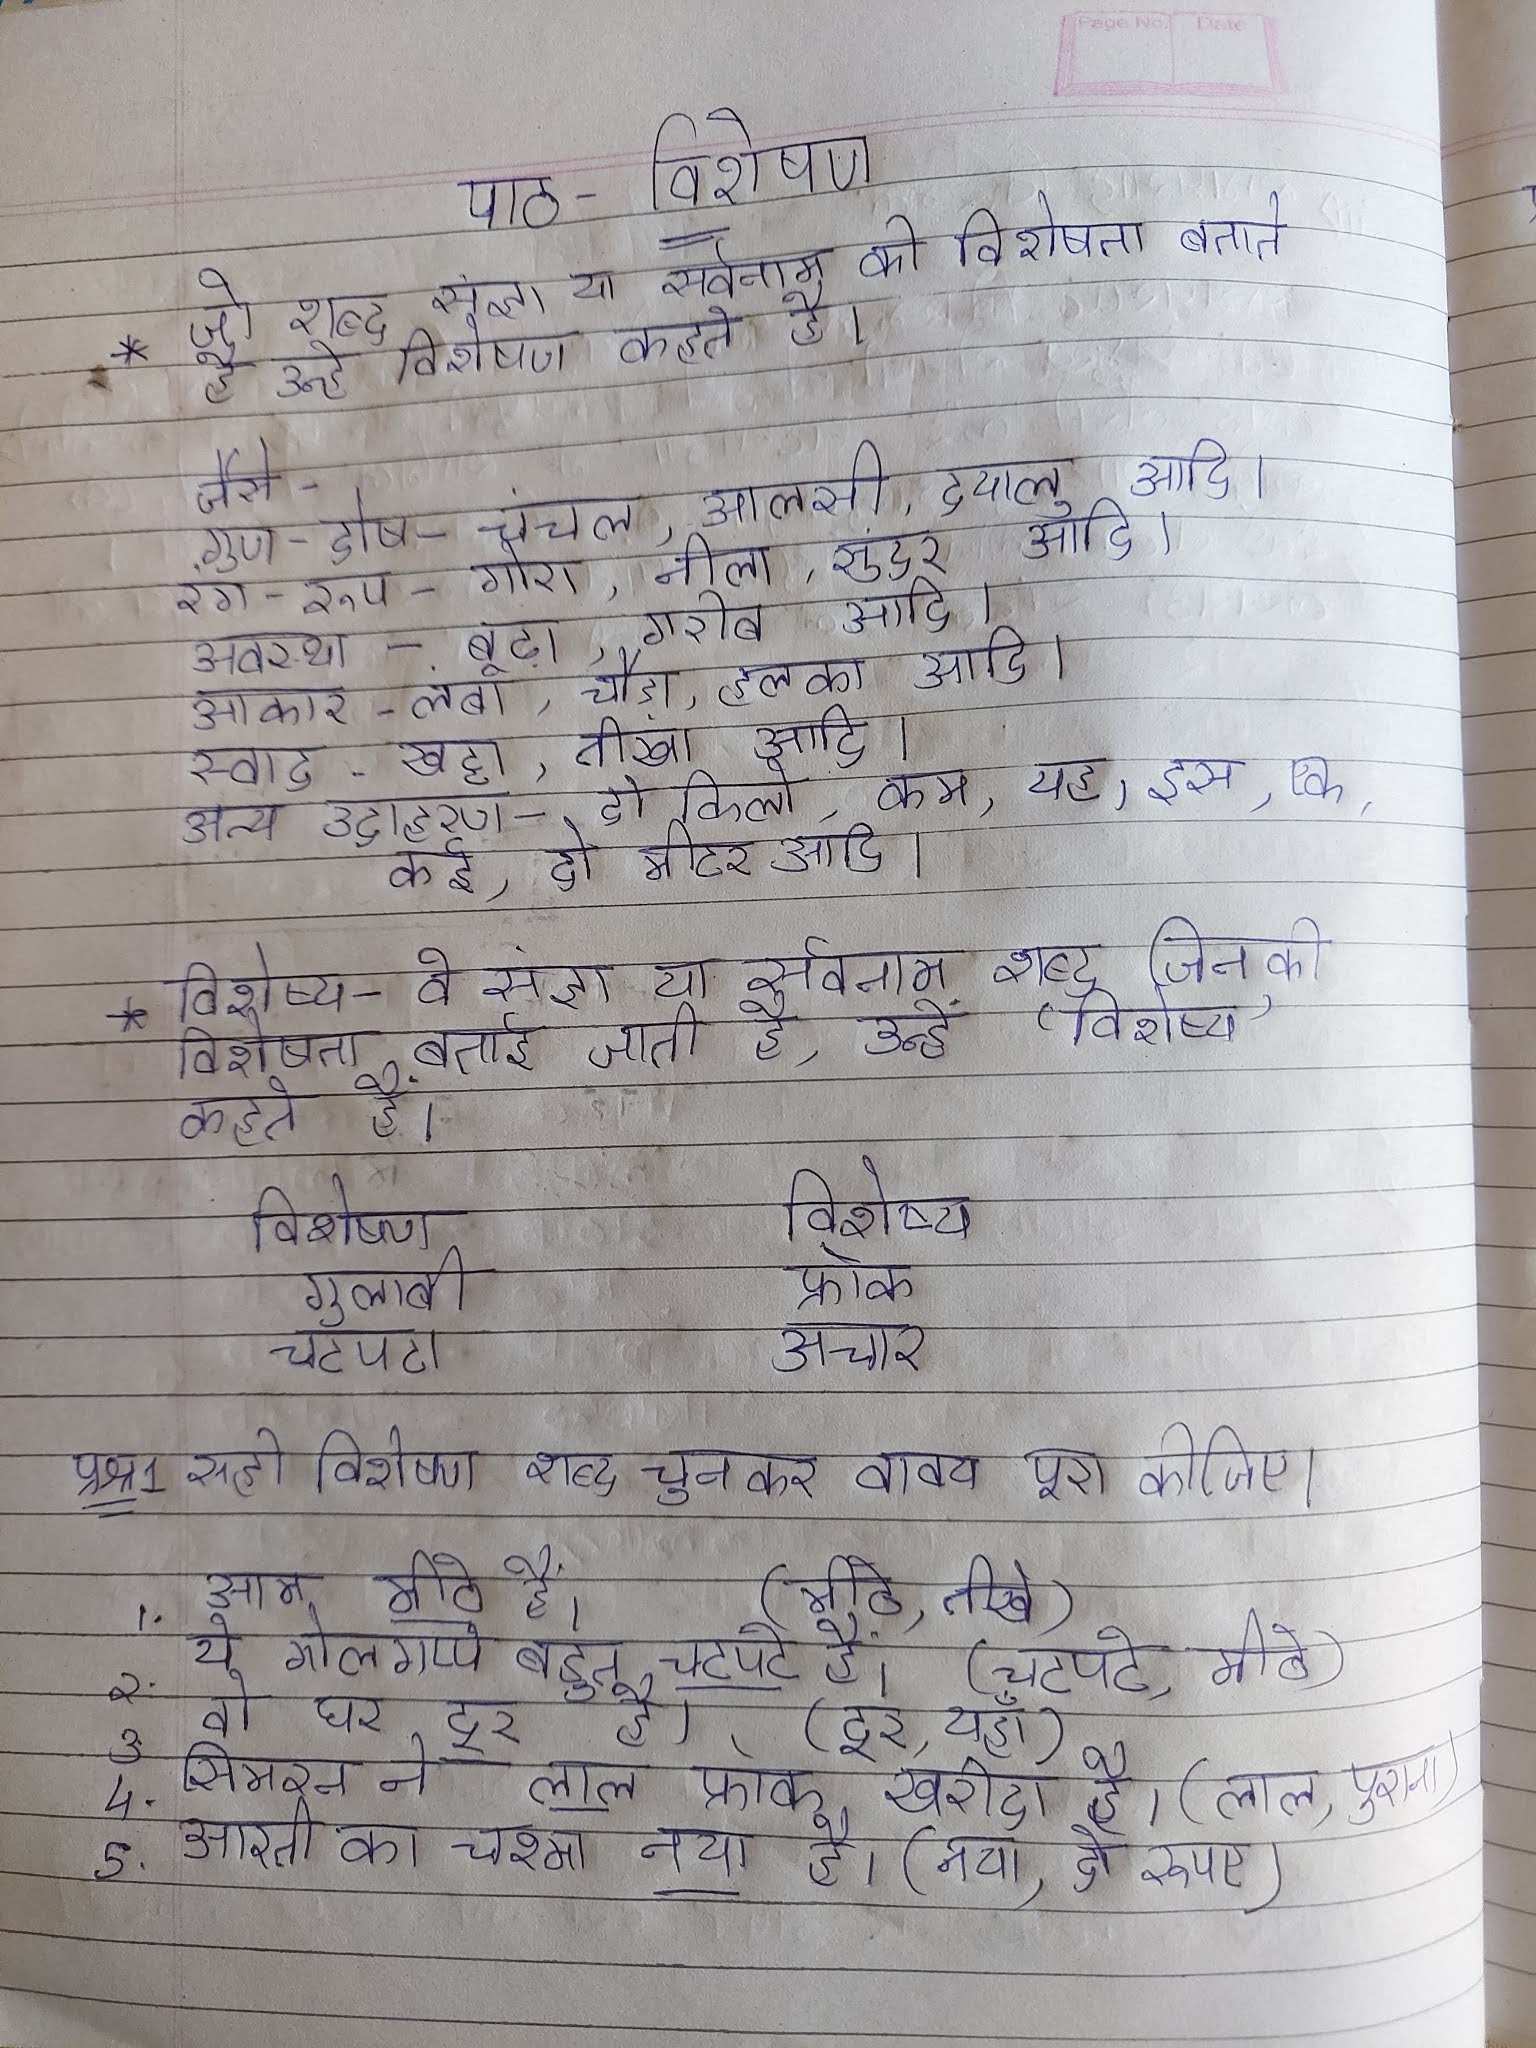 Page No. Date
पाठ - विशेषण
* जो शब्द संज्ञा या सर्वनाम की विशेषता बताते
है उन्हे विशेषण कहते हैं।
जैसे -
गुण - दोष - चंचल, आलसी, दयालु आदि।
रंग - रूप - गोरा, नीला, सुंदर आदि।
अवस्था - बूढ़ा, गरीब आदि।
आकार - लंबा, चौड़ा, हलका आदि।
स्वाद - खट्टा, तीखा आदि।
अन्य उदाहरण - दो किलो, कम, यह, इस, एक,
कई, दो मीटर आदि।
* विशेष्य - वे संज्ञा या र्सवनाम शब्द जिनकी
विशेषता बताई जाती है, उन्हें 'विशेष्य'
कहते हैं।
विशेषण विशेष्य
गुलाबी फ्रॉक
चटपटा अचार
प्रश्न1 सही विशेषण शब्द चुनकर वाक्य पूरा कीजिए।
1. आम मीठे हैं। (मीठे, तीखे)
2. ये गोलगप्पे बहुत चटपटे हैं। (चटपटे, मीठे)
3 वो घर दूर है। (दूर, यहाँ)
4. सिमरन ने लाल फ्रॉक खरीदा है। (लाल, पुराना)
5. आरती का चश्मा नया है। (नया, दो रूपए)